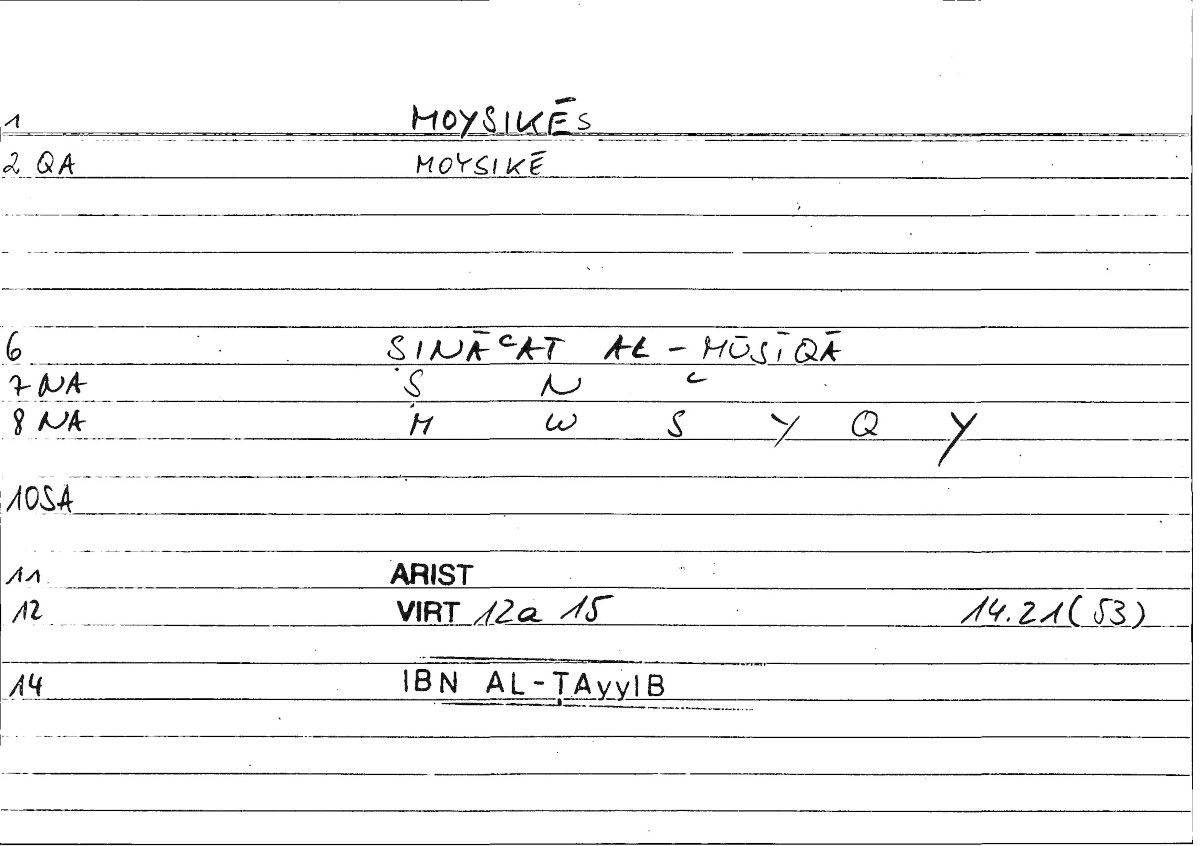 1 MOYSIKĒS
2 QA MOYSIKĒ
6 ṢINĀʿAT AL-MŪSĪQĀ
7 NA Ṣ N ʿ
8 NA M W S Y Q Y
10 SA
11 ARIST
12 VIRT 12a 15 14.21(53)
14 IBN AL-ṬAyyIB